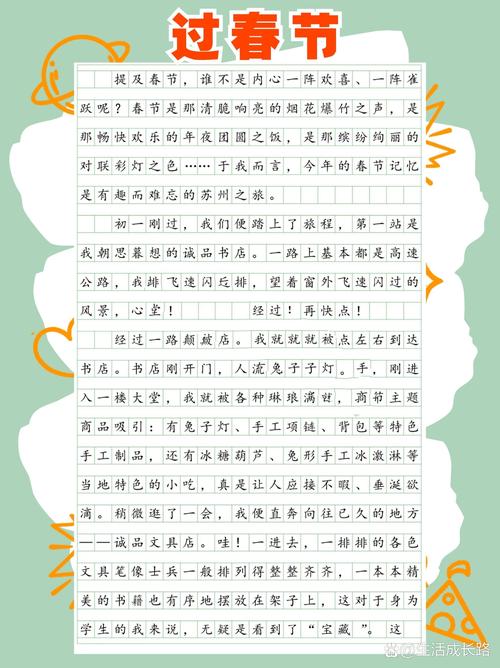 过春节
提及春节，谁不是内心一阵欢喜、一阵雀
跃呢？春节是那清脆响亮的烟花爆竹之声，是
那畅快欢乐的年夜团圆之饭，是那缤纷绚丽的
对联彩灯之色……于我而言，今年的春节记忆
是有趣而难忘的苏州之旅。
初一刚过，我们便踏上了旅程，第一站是
我朝思暮想的诚品书店。一路上基本都是高速
公路，我排飞速闪过排，望着窗外飞速闪过的
风景，心堂！ 经过！再快点！
经过一路颠簸店。我就就就被点左右到达
书店。书店刚开门，人流兔子子灯。手，刚进
入一楼大堂，我就被各种琳琅满目，商节主题
商品吸引：有兔子灯、手工项链、背包等特色
手工制品，还有冰糖葫芦、兔形手工冰激淋等
当地特色的小吃，真是让人应接不暇、垂涎欲
滴。稍微逛了一会，我便直奔向往已久的地方
——诚品文具店。哇！一进去，一排排的各色
文具笔像士兵一般排列得整整齐齐，一本本精
美的书籍也有序地摆放在架子上，这对于身为
学生的我来说，无疑是看到了“宝藏”。这
@生活成长路